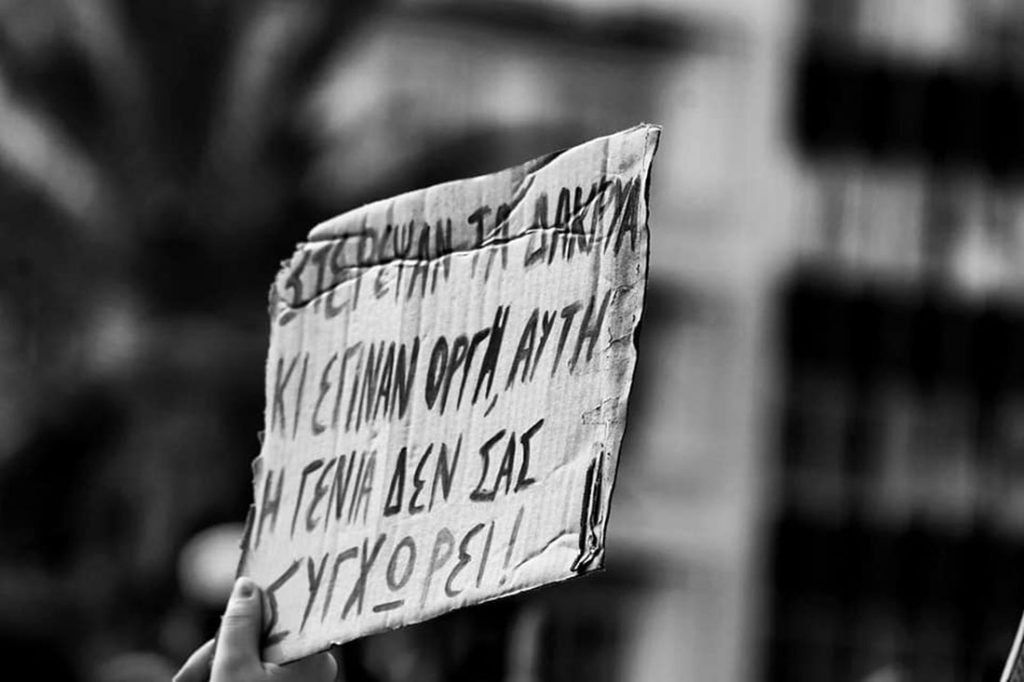 ΣΤΕΡΕΨΑΝ ΤΑ ΔΑΚΡΥΑ
ΚΙ ΕΓΙΝΑΝ ΟΡΓΗ, ΑΥΤΗ
Η ΓΕΝΙΑ ΔΕΝ ΣΑΣ
ΣΥΓΧΩΡΕΙ!